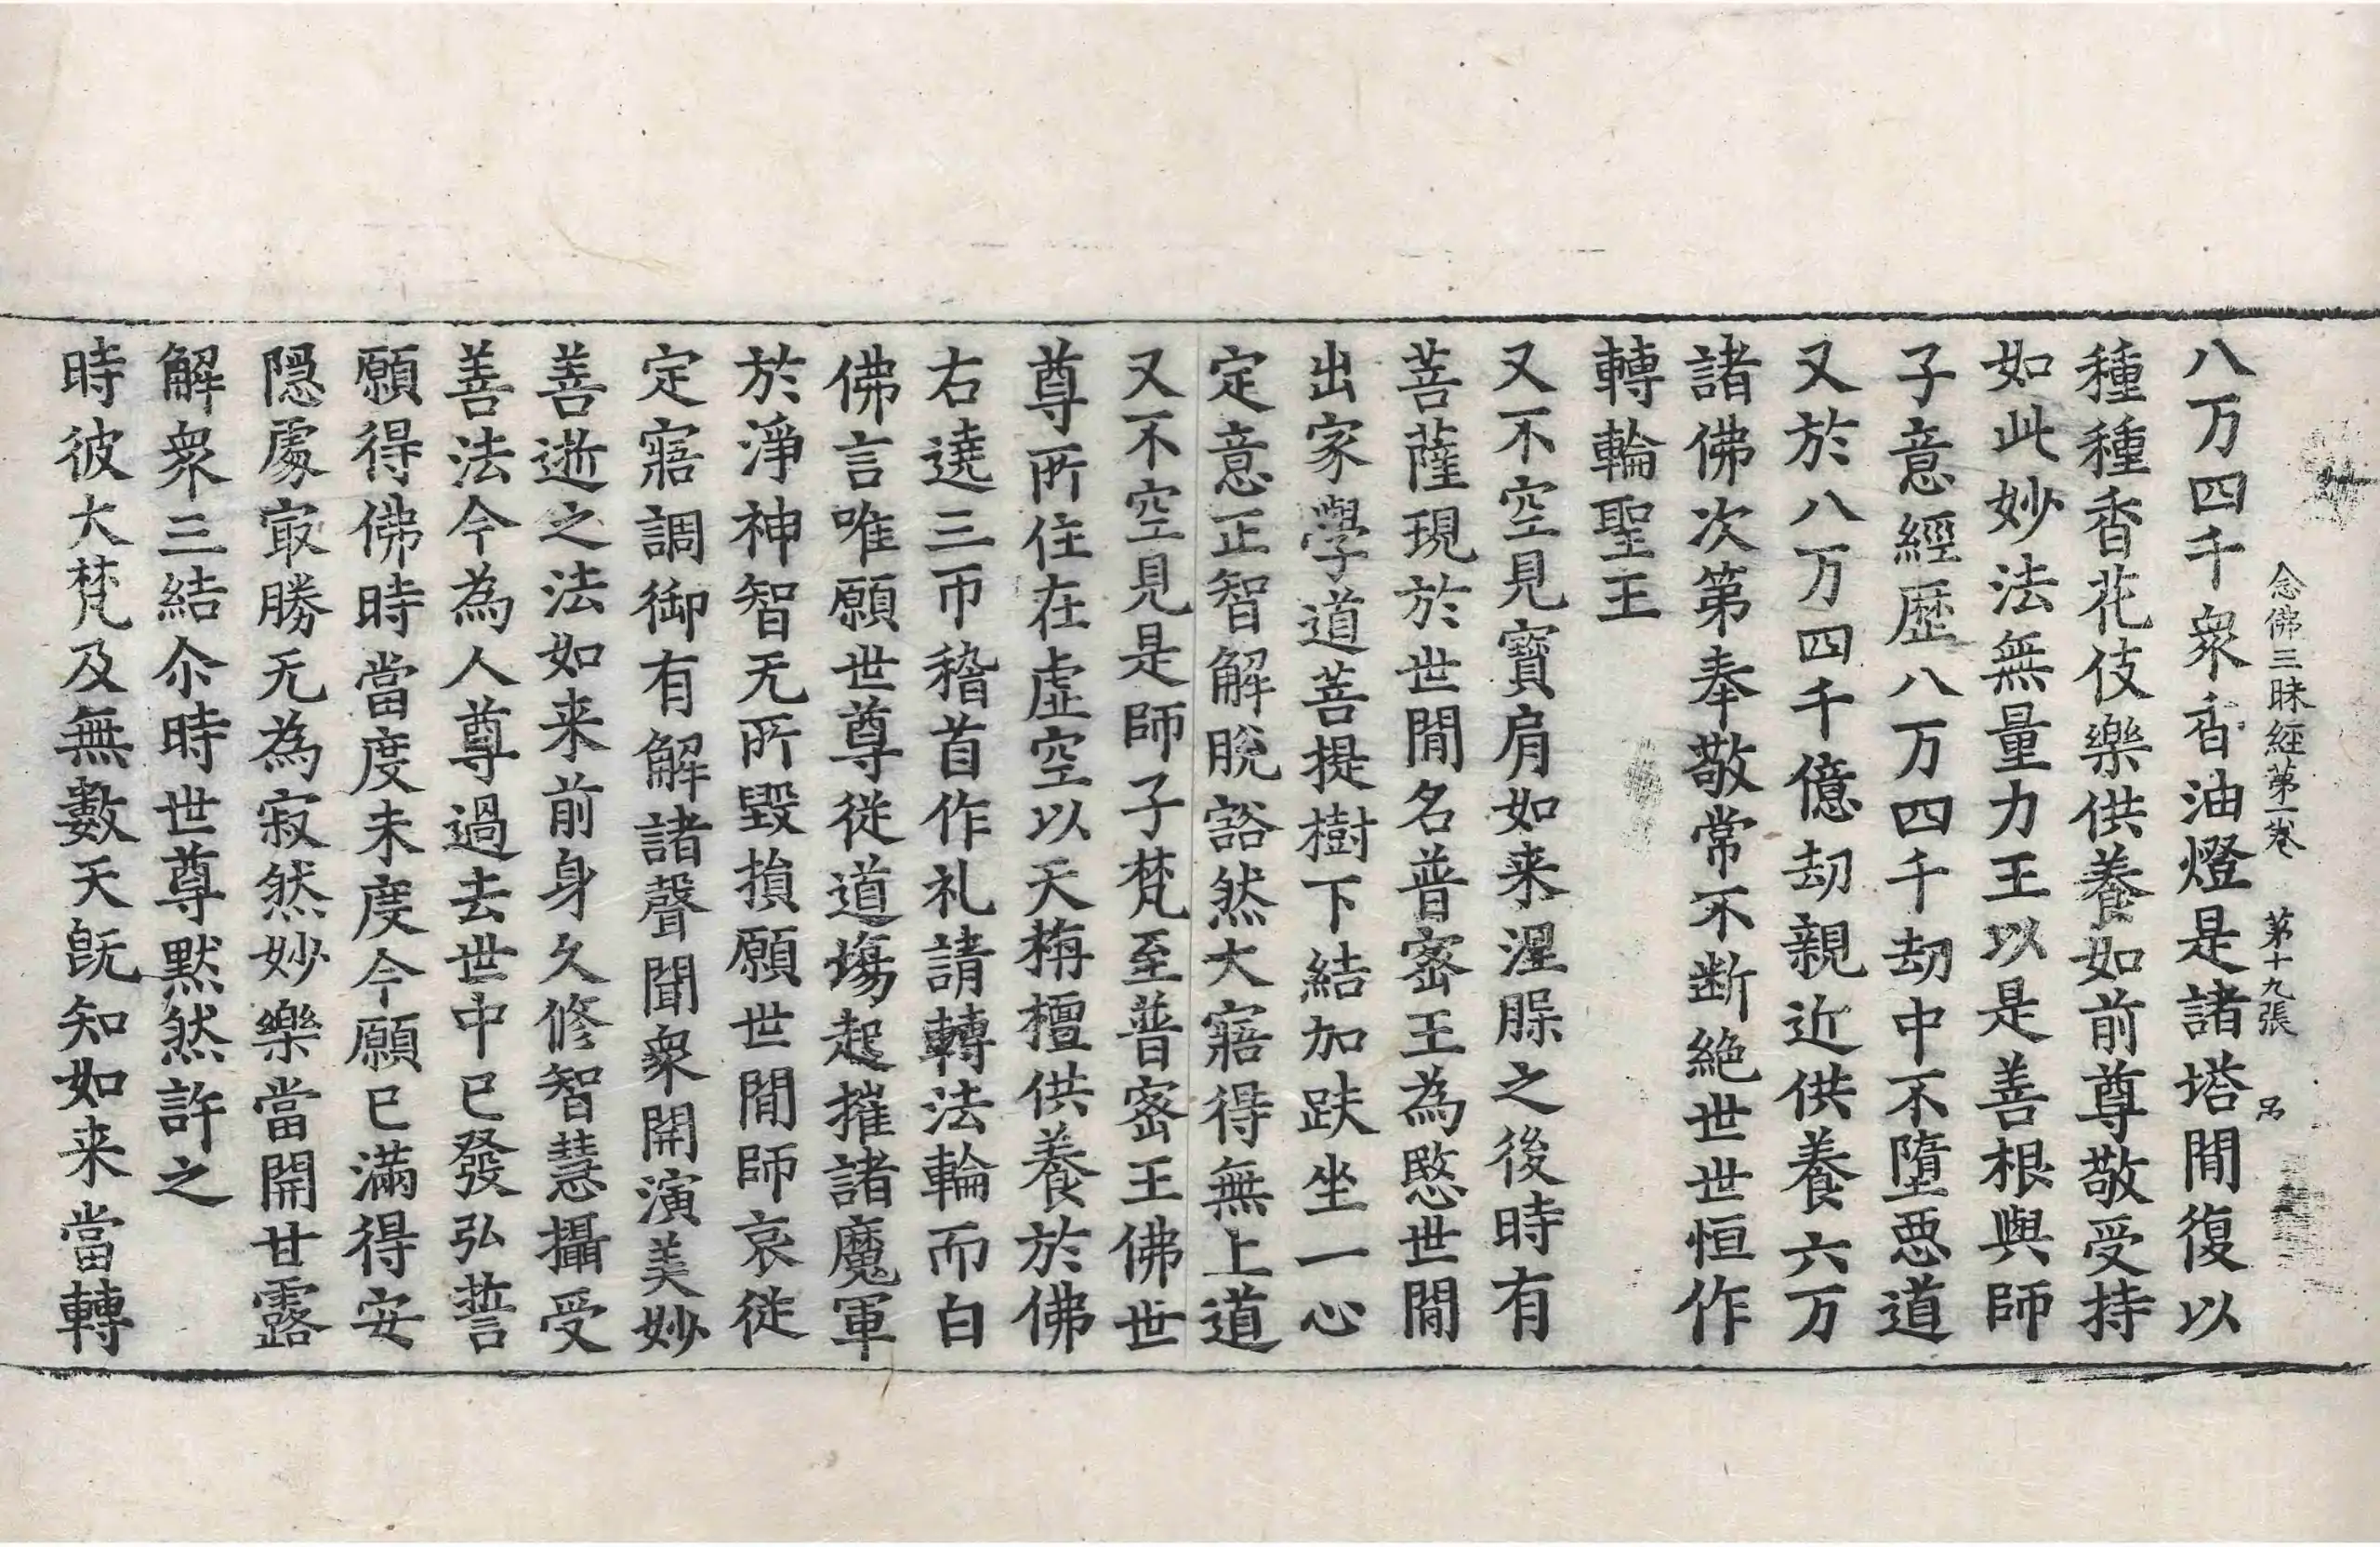 念佛三昧經第一卷　第十九張　另
八万四千衆香油燈是諸塔閒復以
種種香花伎樂供養如前尊敬受持
如此妙法無量力王以是善根與師
子意經歷八万四千劫中不墮惡道
又於八万四千億劫親近供養六万
諸佛次第奉敬常不斷絶世世恒作
轉輪聖王
又不空見寶肩如来涅脲之後時有
菩薩現於世閒名普宻王為愍世閒
出家學道菩提樹下結加趺坐一心
定意正智解脫豁然大寤得無上道
又不空見是師子梵至普宻王佛世
尊所住在虛空以天栴檀供養於佛
右遶三帀稽首作礼請轉法輪而白
佛言唯願世尊從道塲起摧諸魔軍
於淨神智无所毀損願世閒師哀從
定寤調御有解諸聲聞衆開演美妙
善逝之法如来前身久修智慧攝受
善法今為人尊過去世中已發弘誓
願得佛時當度未度今願已滿得安
隱處冣勝无為寂然妙樂當開甘露
解衆三結尒時世尊默然許之
時彼大梵及無數天既知如来當轉